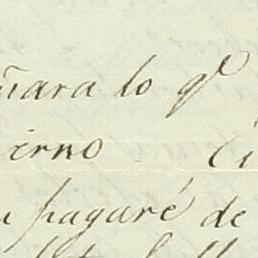 ñara lo qe
ierno
pagaré de